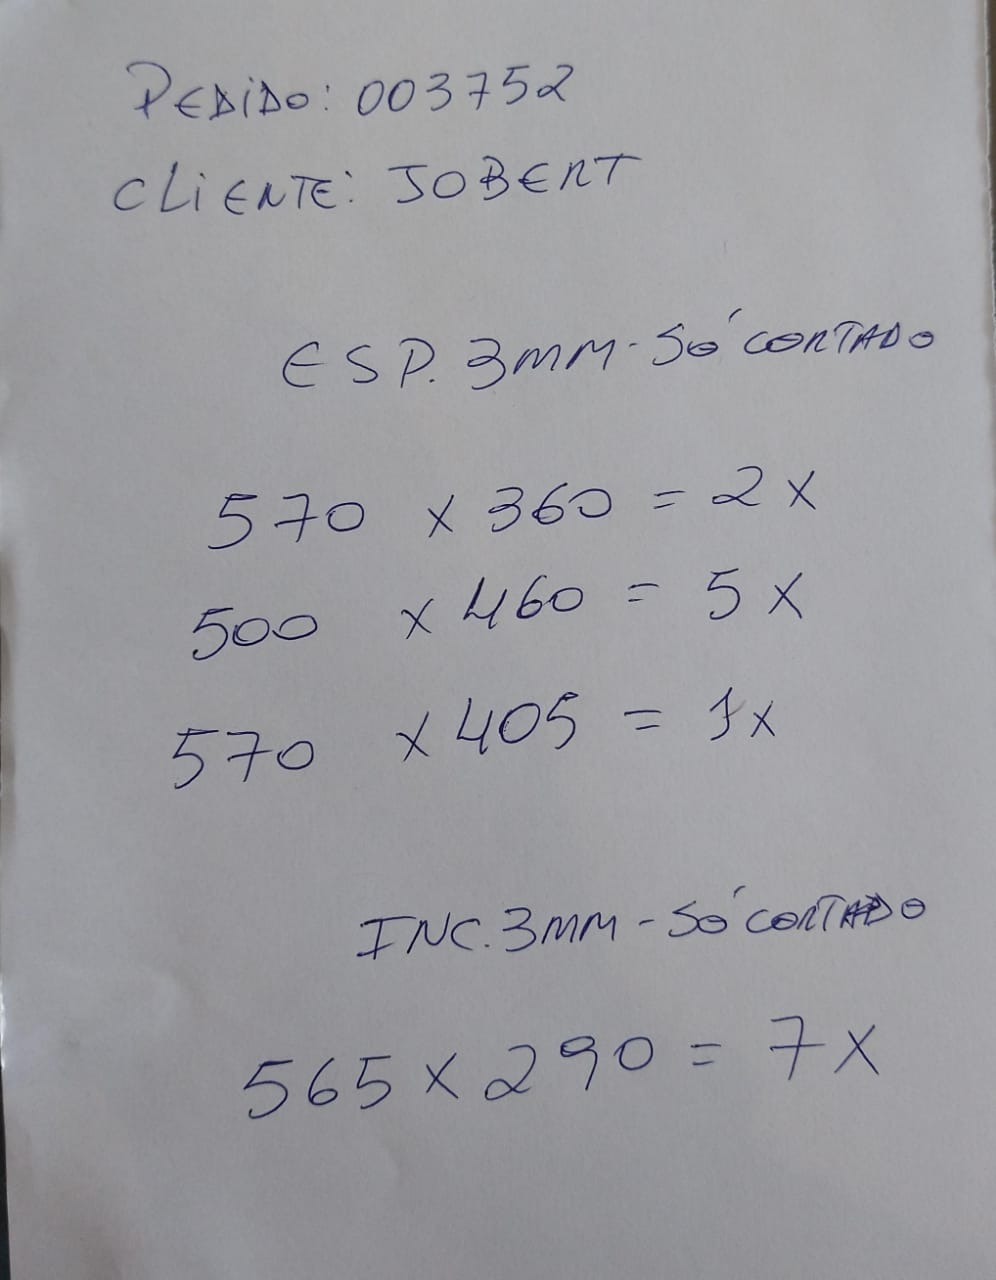 PEDIDO: 003752
CLIENTE: JOBERT
ESP. 3MM - SÓ CORTADO
570 x 360 = 2x
500 x 460 = 5x
570 x 405 = 1x
INC. 3MM - SÓ CORTADO
565 x 290 = 7x